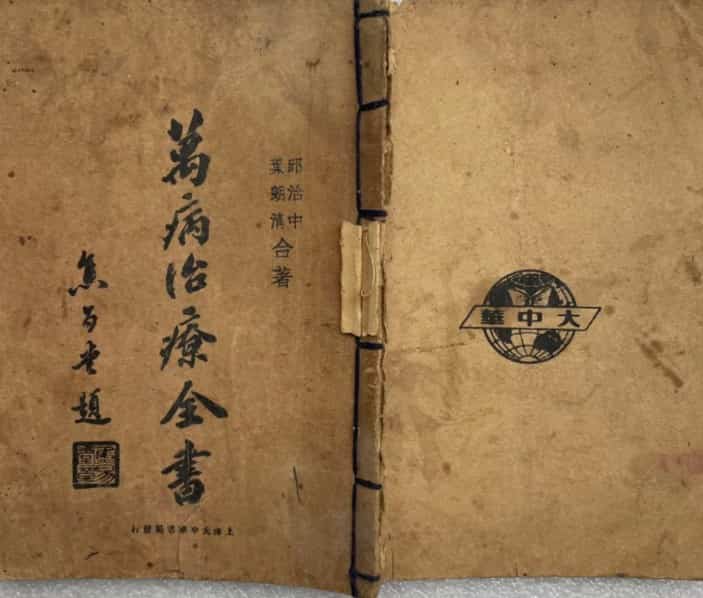 邱治中
葉
合著
萬病治療全書
焦易堂題
上海大中華書局發行
大中華